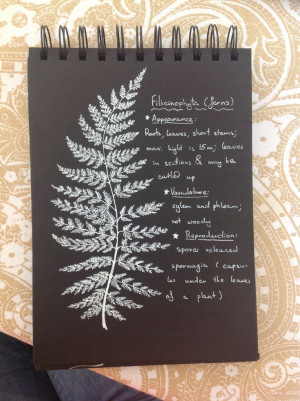 Filicinophyta (ferns)
* Appearance:
Roots, leaves, short stems;
max. hight is 15m; leaves
in sections & may be
curled up
* Vasculature:
xylem and phloem;
not woody
* Reproduction:
spores released
sporangia (capsu-
les under the leaves
of a plant)